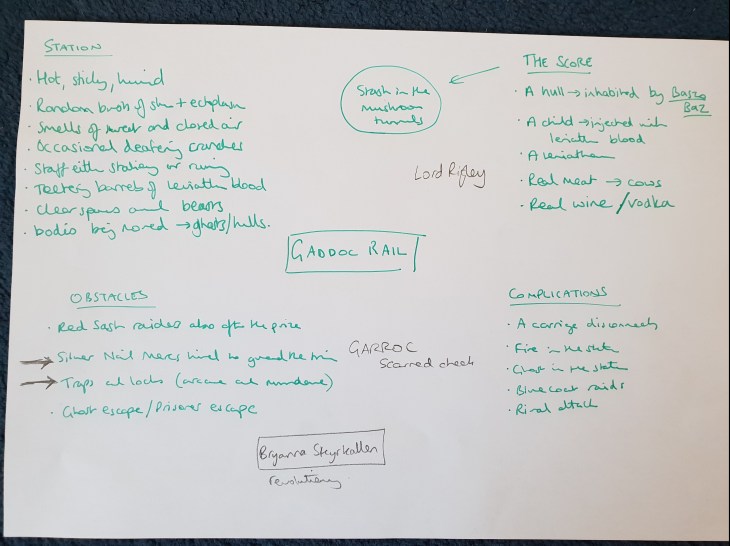 STATION
· Hot, sticky, humid
· Random bursts of steam + ectoplasm
· Smells of sweat and closed air
· Occasional deafening crunches
· Staff either stationary or running
· Teetering barrels of leviathan blood
· Clear spaces and beasts
· bodies being moved → ghosts/hulls.
Stash in the
mushroom
tunnels
THE SCORE
· A hull → inhabited by Baszo
Baz
· A child → injected with
leviathan blood
· A leviathan
· Real meat → cows
· Real wine / vodka
Lord Rigley
GADDOC RAIL
OBSTACLES
· Red Sash raiders also after the prize
· Silver Nail Mercs hired to guard the train
· Traps and locks (arcane and mundane)
· Ghost escape / Prisoner escape
GARROC
Scarred cheek
COMPLICATIONS
· A carriage disconnects
· Fire in the station
· Ghost in the station
· Bluecoat raids
· Rival attack
Bryanna Steyrkallen
revolutionary